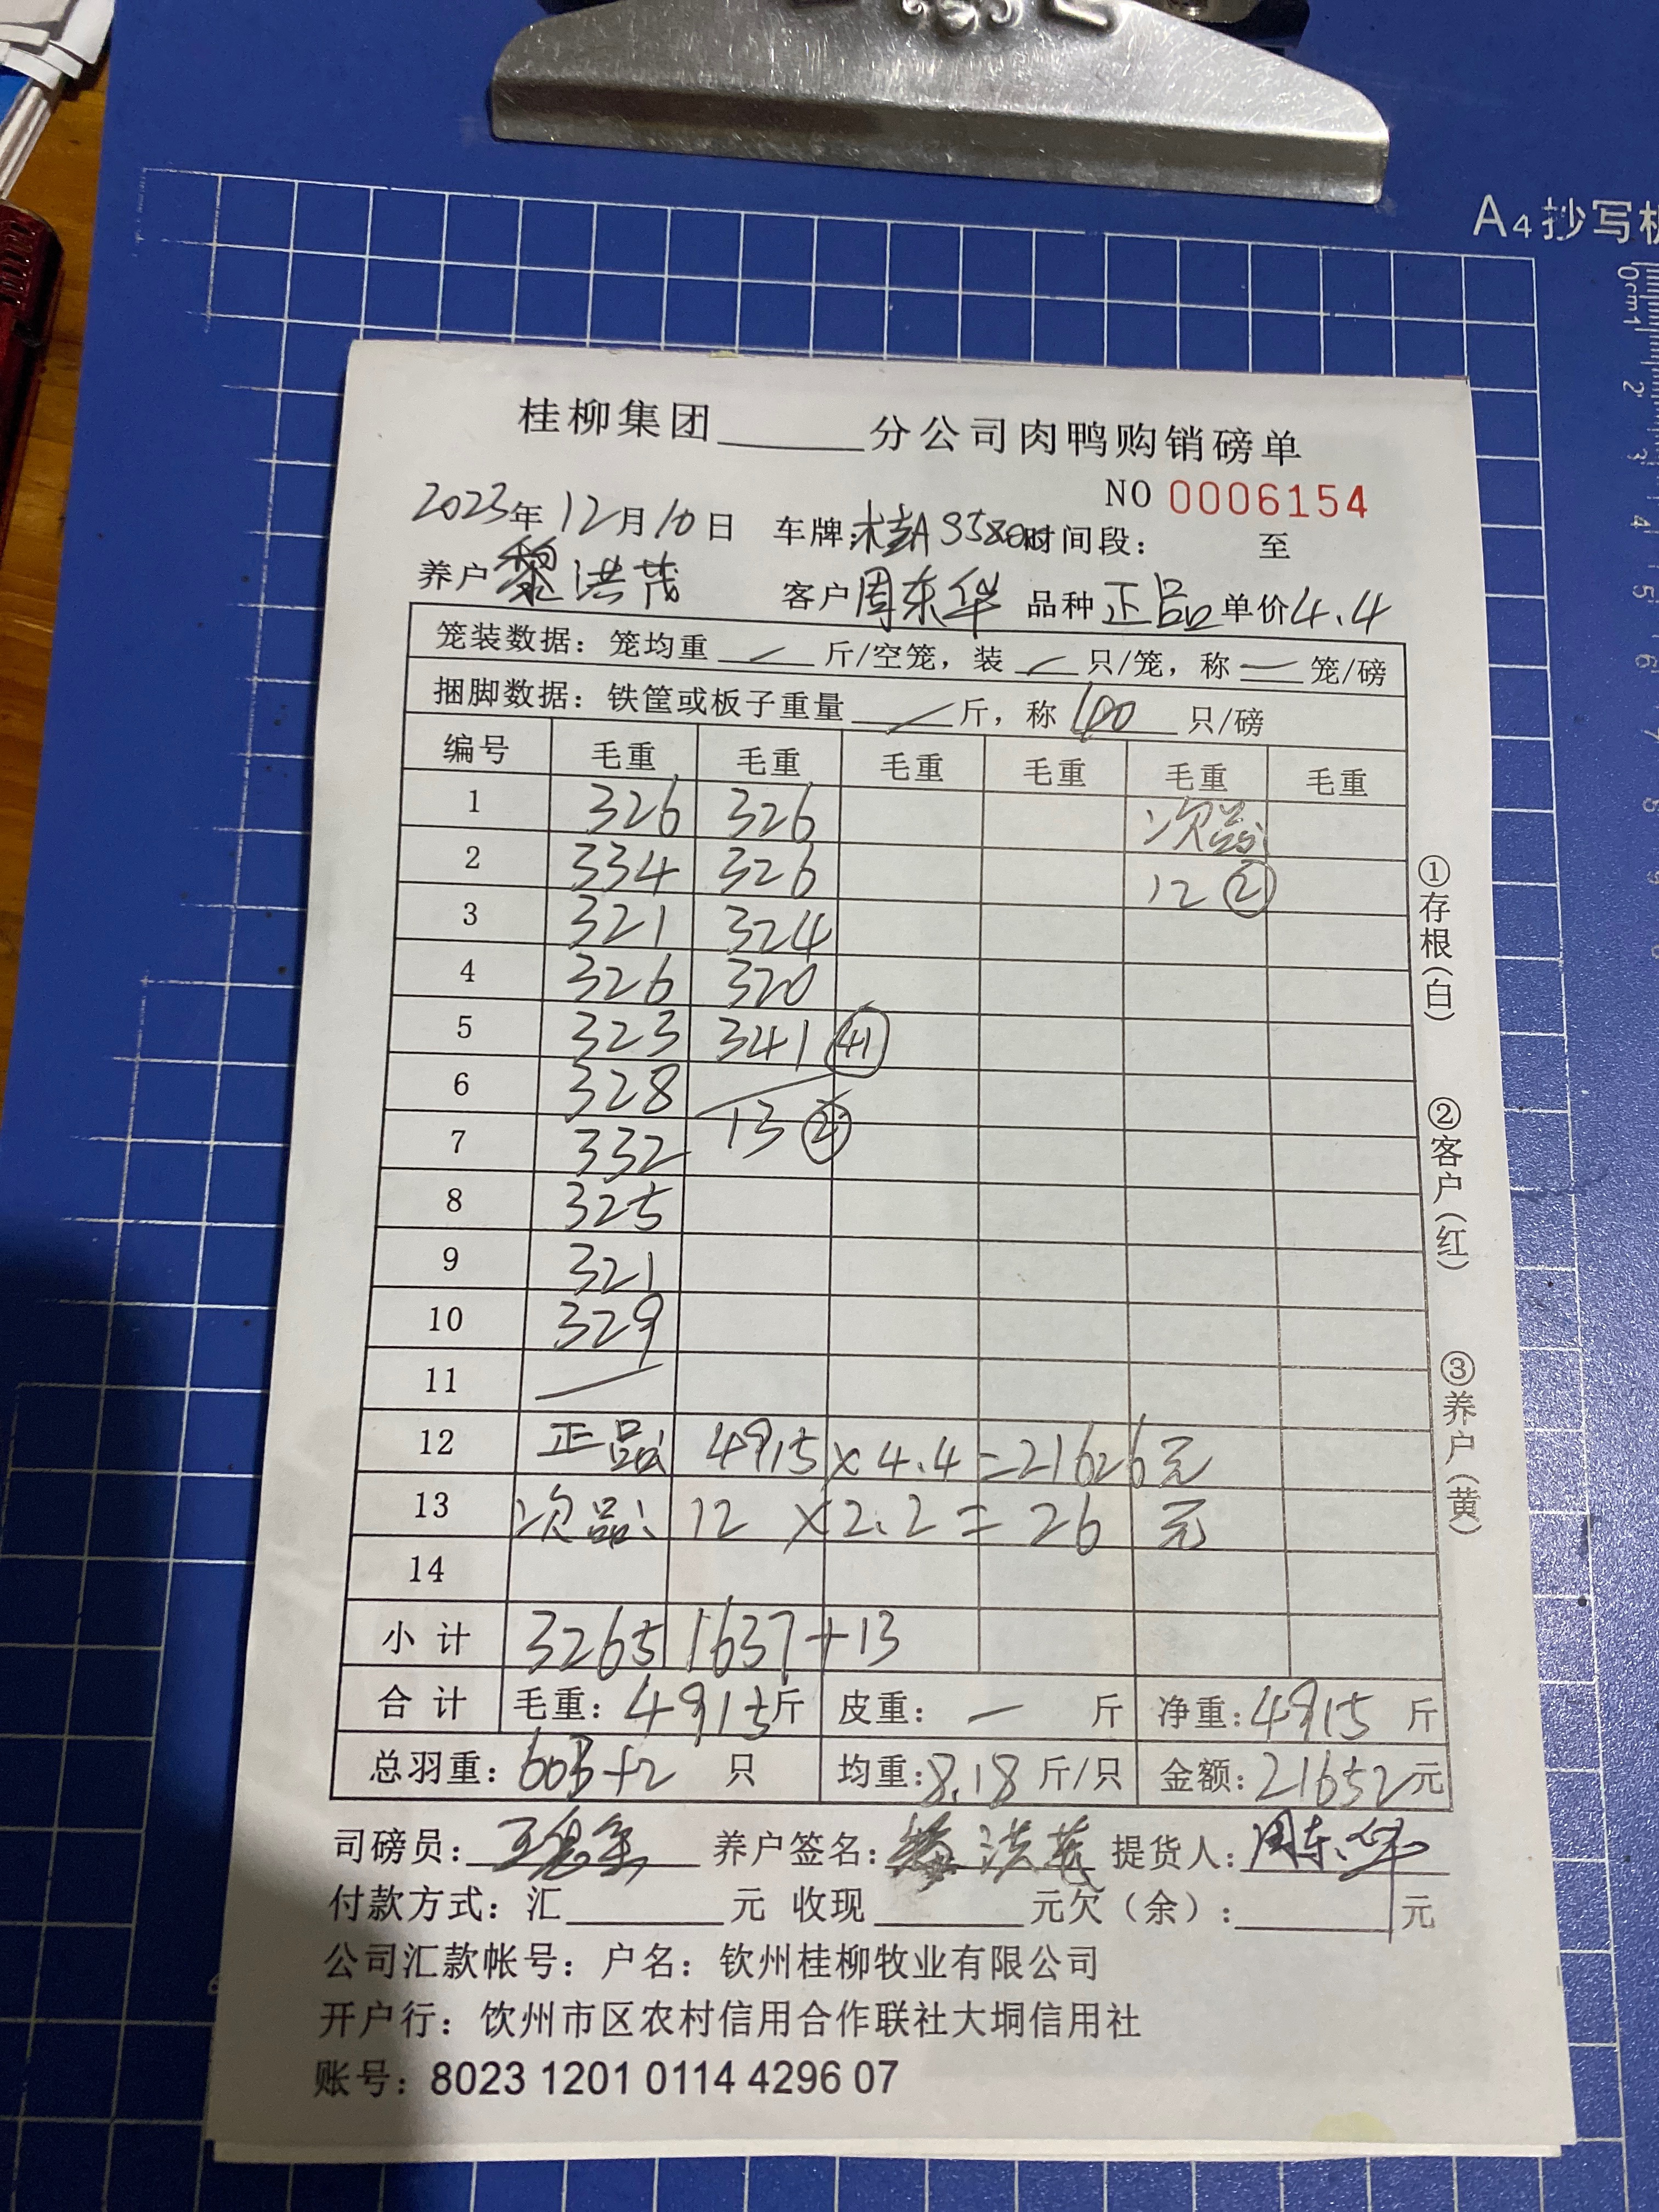 A4抄写板
0cm1 2 3 4 5 6 7 8 9
桂柳集团______分公司肉鸭购销磅单
NO 0006154
2023年12月10日 车牌:桂A 时间段: 至
养户 黎洪茂 客户 周东华 品种 正品 单价 4.4
笼装数据: 笼均重 — 斤/空笼, 装 — 只/笼, 称 — 笼/磅
捆脚数据: 铁筐或板子重量 — 斤, 称 100 只/磅
编号 毛重 毛重 毛重 毛重 毛重 毛重
1 326 326 次品:
2 334 326 12 ②
3 321 324
4 326 320
5 323 341 (41)
6 328
7 332 13 ②
8 325
9 321
10 329
11 —
12 正品: 4915×4.4=21626元
13 次品: 12 ×2.2= 26 元
14
小计 3265 1637+13
合计 毛重: 4915斤 皮重: — 斤 净重: 4915 斤
总羽重: +2 只 均重: 8.18 斤/只 金额: 21652元
司磅员: 养户签名: 洪茂 提货人: 周东华
付款方式: 汇______元 收现______元欠(余):______元
公司汇款帐号: 户名: 钦州桂柳牧业有限公司
开户行: 钦州市区农村信用合作联社大垌信用社
账号: 8023 1201 0114 4296 07
①存根(白)
②客户(红)
③养户(黄)